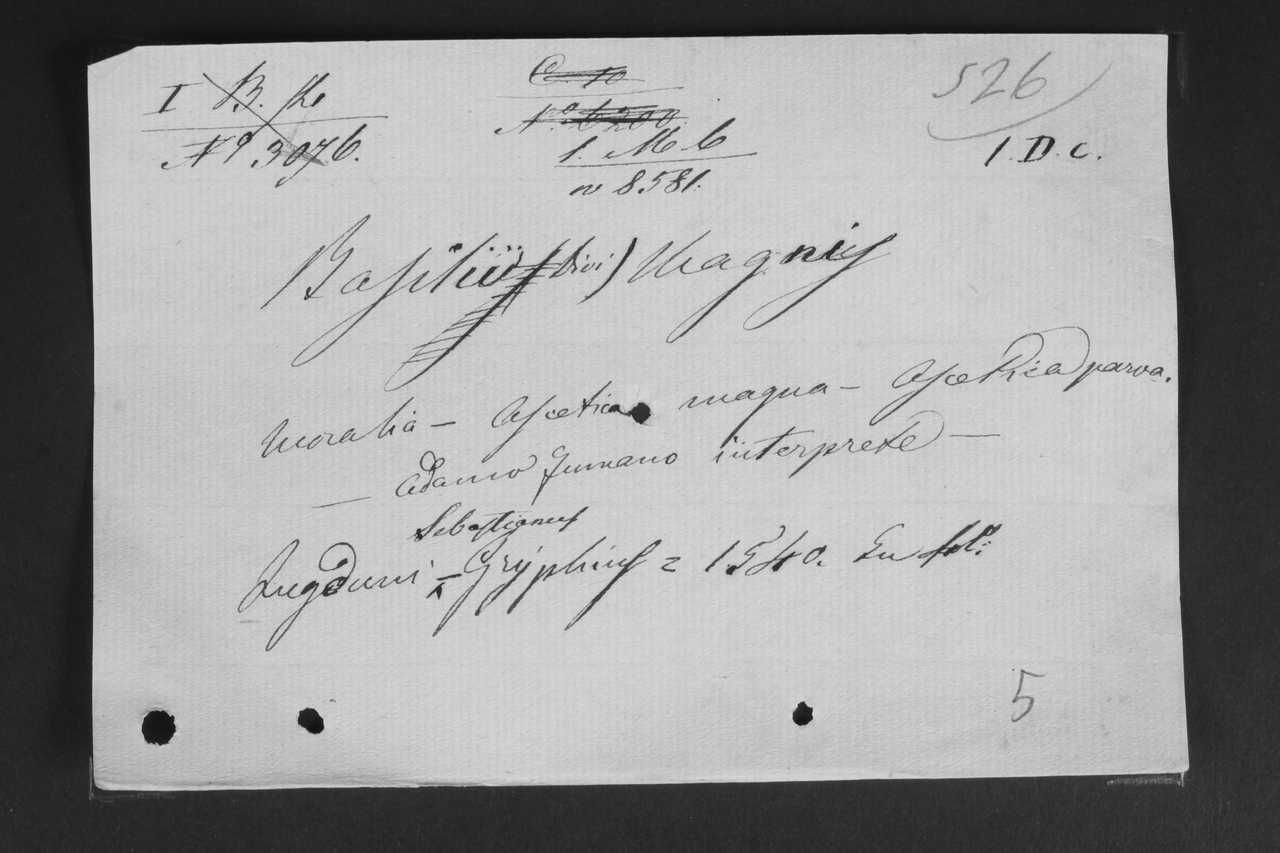 I B. K.
Nº 3076.
C 10
Nº 6200.
1. M b
nº 8581.
526
1. D. c.
Basilii (Divi) Magnis
Moralia — Ascetica magna — Ascetica parva.
— Adamo Fumano interprete —
Sebastianus
Lugduni — Gryphius = 1540. In fol:
5